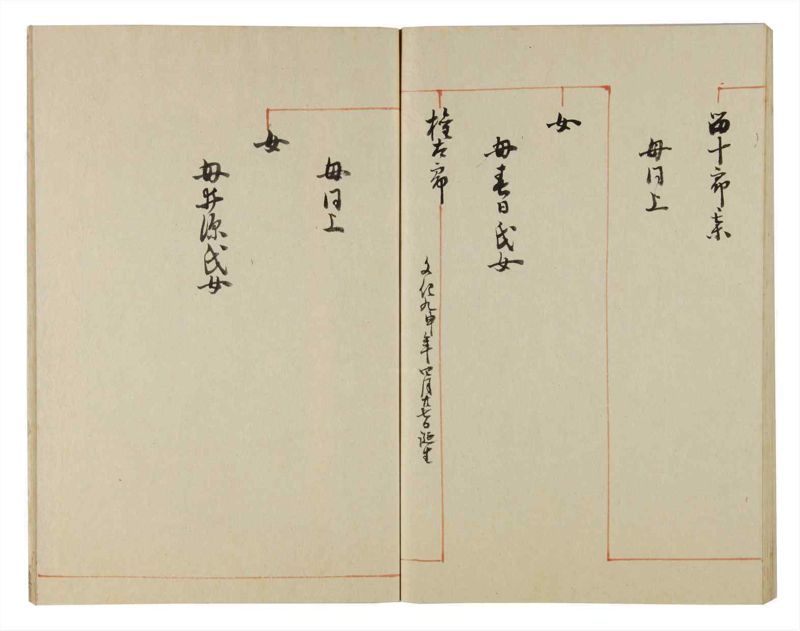 母同上
女
母春日氏女
権十郎
文化九申年四月廿七日誕生
母同上
女
母井源氏女